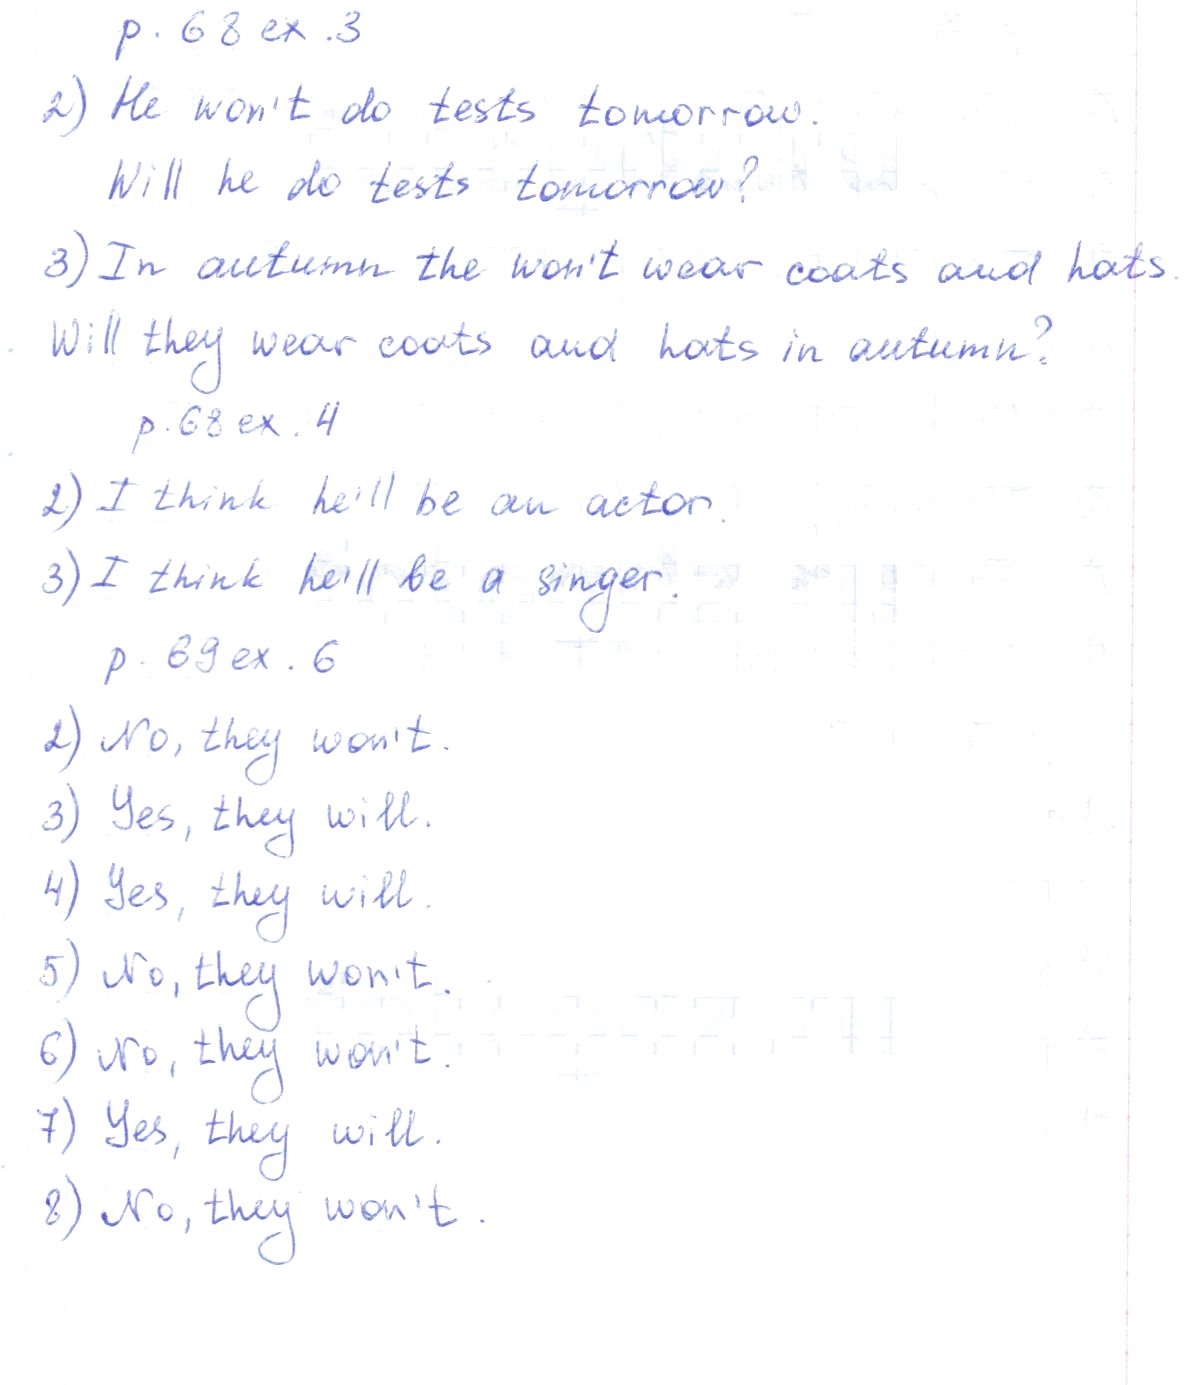 p. 68 ex. 3
2) He won't do tests tomorrow.
Will he do tests tomorrow?
3) In autumn the won't wear coats and hats.
Will they wear coats and hats in autumn?
p. 68 ex. 4
2) I think he'll be an actor.
3) I think he'll be a singer.
p. 69 ex. 6
2) No, they won't.
3) Yes, they will.
4) Yes, they will.
5) No, they won't.
6) No, they won't.
7) Yes, they will.
8) No, they won't.